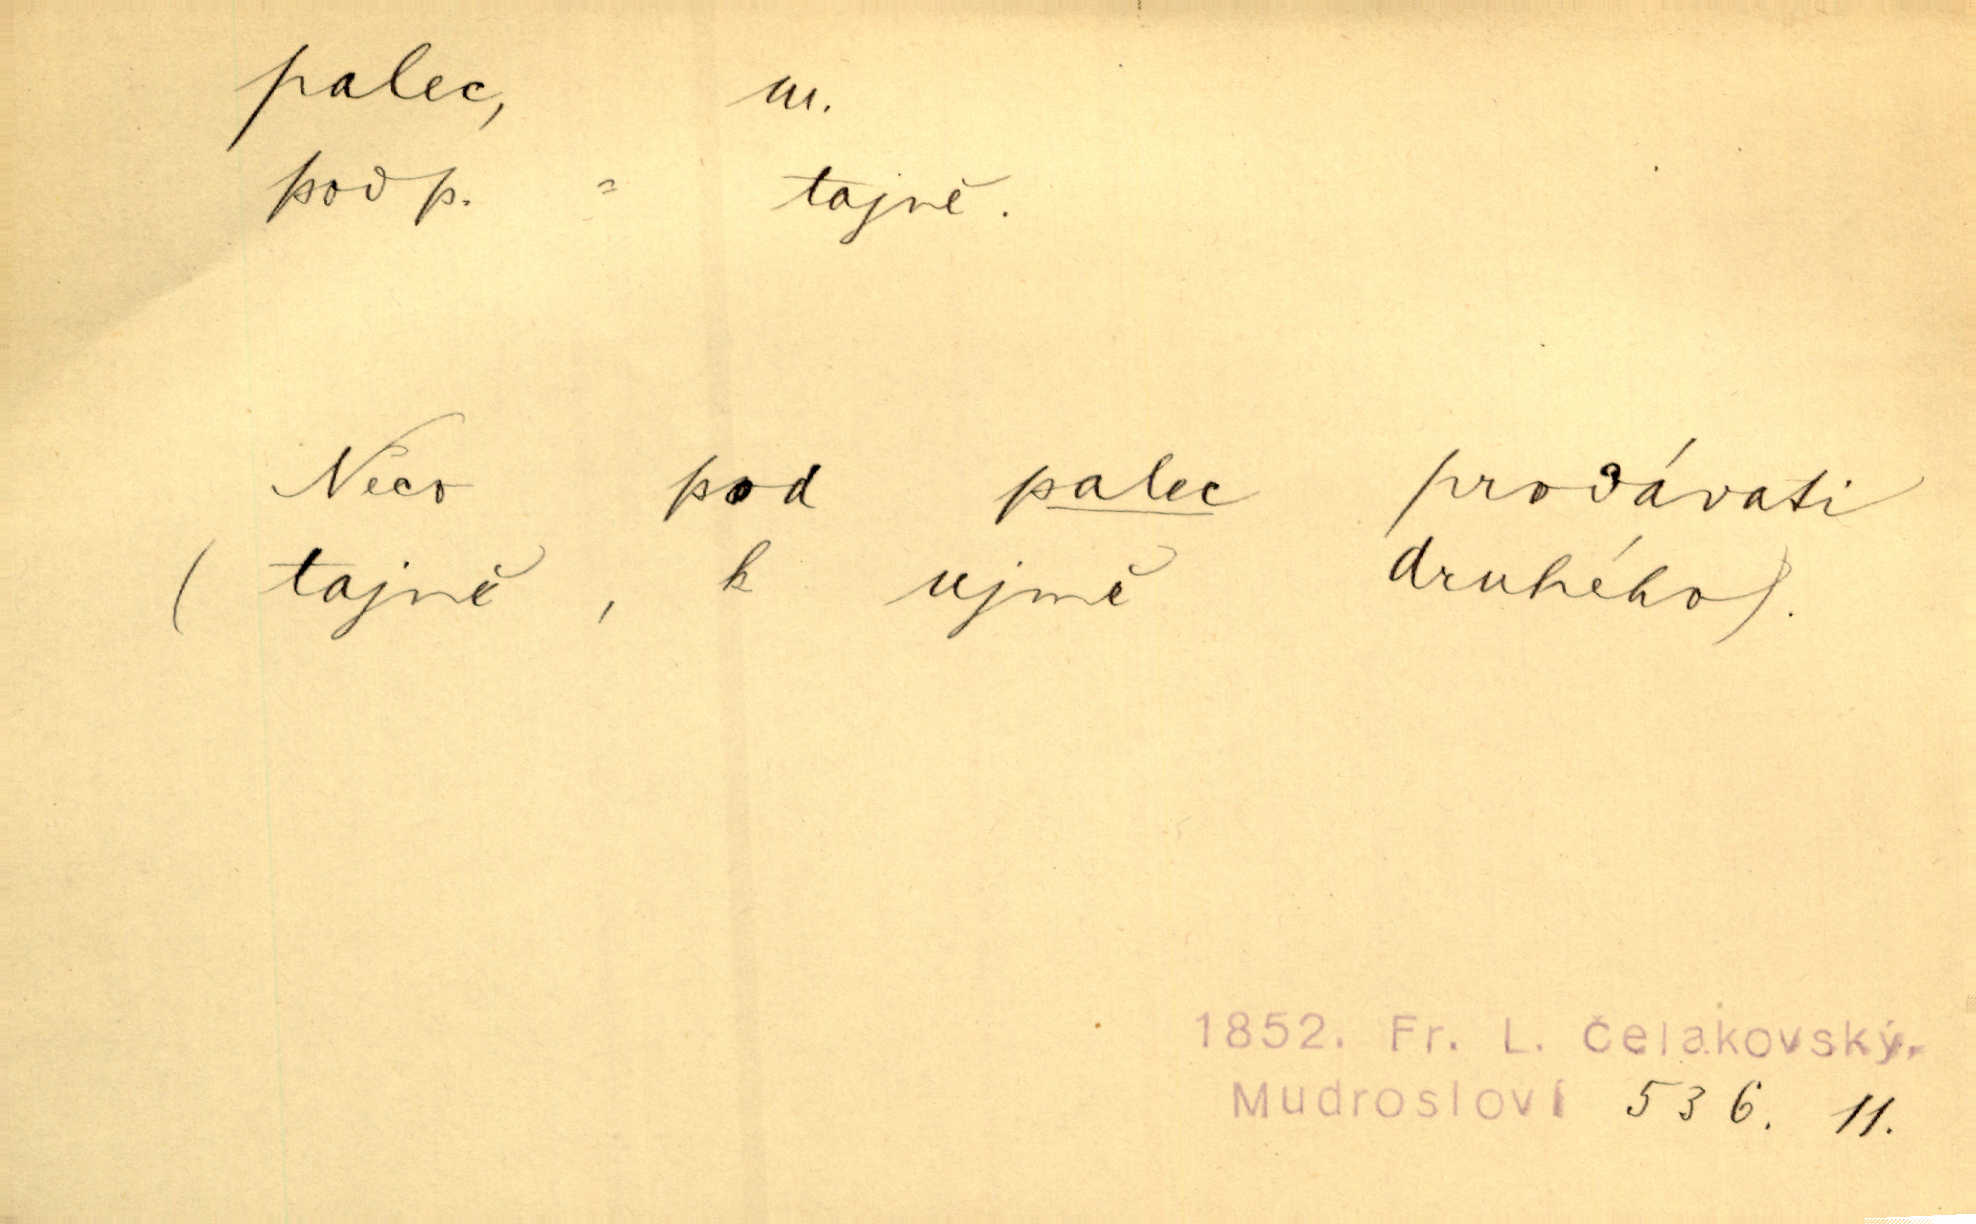 palec, m.
pod p. = tajně.
Něco pod palec prodávati
( tajně , k ujmě druhého).
1852. Fr. L. Čelakovský.
Mudrosloví 536. 11.